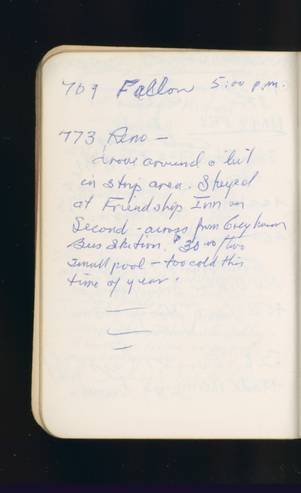 709 Fallon 5:00 p.m.
773 Reno -
drove around a bit
in strip area. Stayed
at Friendship Inn on
Second - across from Greyhound
Bus Station. $30.00/two
small pool - too cold this
time of year.